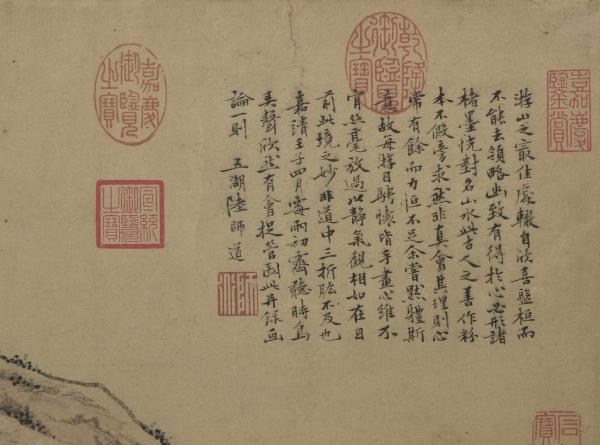 游山之最佳處輒自欣喜盤桓而
不能去領略幽致有得於心必形諸
楮墨恍對名山水此古人之善作粉
本不假旁求然非真會其理則心
常有餘而力恒不足余嘗默體斯
真故每游目騁懷皆手畫心維不
肯絲毫放過以靜氣觀相如在目
前此境之妙非道中三折肱不及也
嘉靖壬子四月霪雨初霽聽時鳥
吳聲欣然有會捉管圖此并錄画
論一則 五湖陸師道
師
乾隆御覽之寶
嘉慶御覽之寶
嘉慶鑒賞
宣統御覽之寶